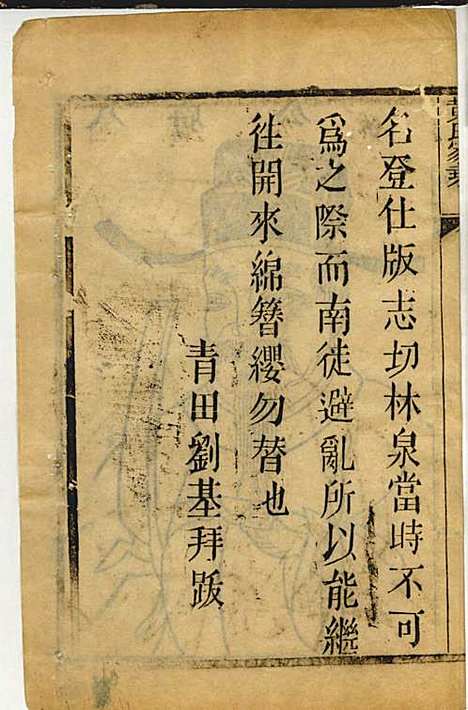 名登仕版志切林泉當時不可
為之際而南徒避亂所以能繼
徃開來綿簪纓勿替也
青田劉基拜跋